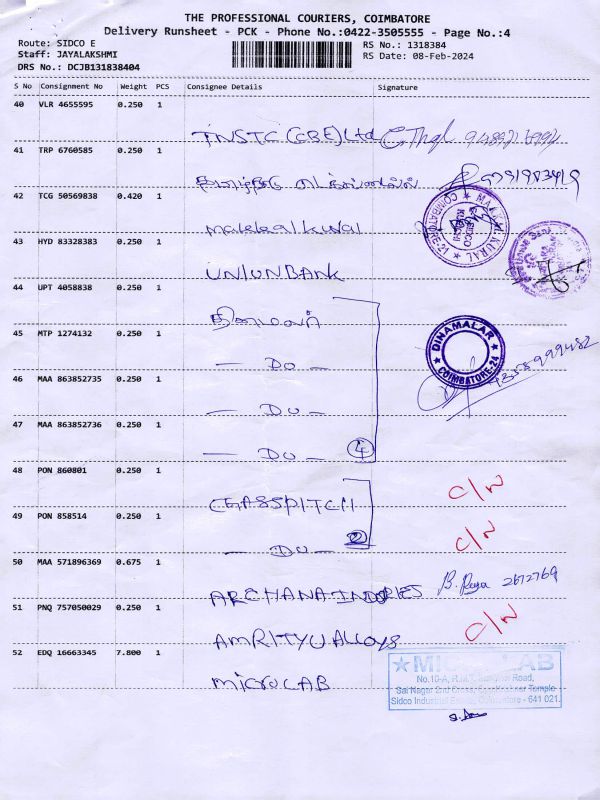 THE PROFESSIONAL COURIERS, COIMBATORE
Delivery Runsheet - PCK - Phone No.:0422-3505555 - Page No.:4
Route: SIDCO E
RS No.: 1318384
Staff: JAYALAKSHMI
RS Date: 08-Feb-2024
DRS No.: DCJB131838404
S No Consignment No Weight PCS Consignee Details Signature
40 VLR 4655595 0.250 1
TNSTC (CBE) Ltd
41 TRP 6760585 0.250 1
42 TCG 50569838 0.420 1
malekalkural
MAALAI KURAL
COIMBATORE-12
43 HYD 83328383 0.250 1
UNIUNBANK
44 UPT 4058838 0.250 1
தினமலர்
45 MTP 1274132 0.250 1
— DO —
DINAMALAR
COIMBATORE-24
46 MAA 863852735 0.250 1
— DO —
47 MAA 863852736 0.250 1
— DO — 4
48 PON 860801 0.250 1
C/N
49 PON 858514 0.250 1
— DO — 2
C/N
50 MAA 571896369 0.675 1
ARCHANA INDRIES B. Raja 2672769
51 PNQ 757050029 0.250 1
AMRITYU Alloys
C/N
52 EDQ 16663345 7.800 1
MICRO LAB
MICRO LAB
No.10-A, Road,
Sai Nagar 2nd Cross, Temple
Sidco Industrial Coimbatore - 641 021.